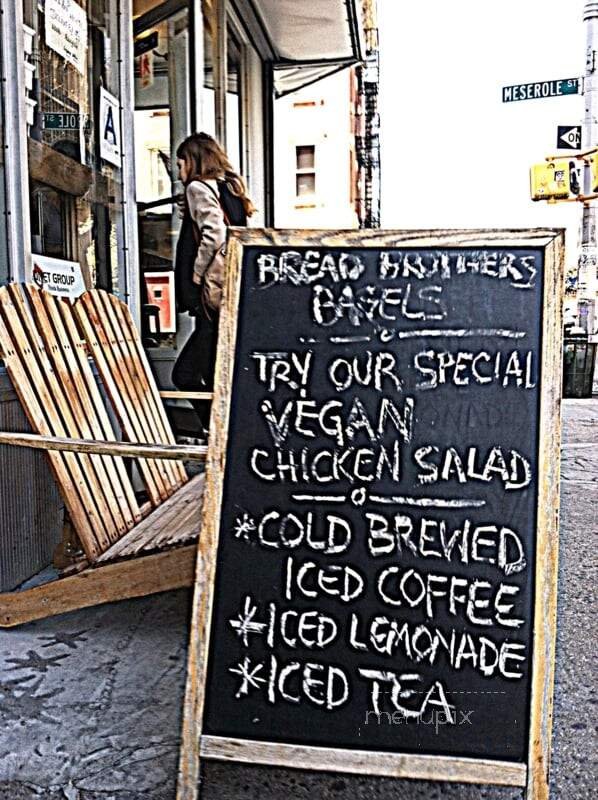 MESEROLE ST
A
BREAD BROTHERS
BAGELS
TRY OUR SPECIAL
VEGAN
CHICKEN SALAD
*COLD BREWED
ICED COFFEE
*ICED LEMONADE
*ICED TEA
menupix